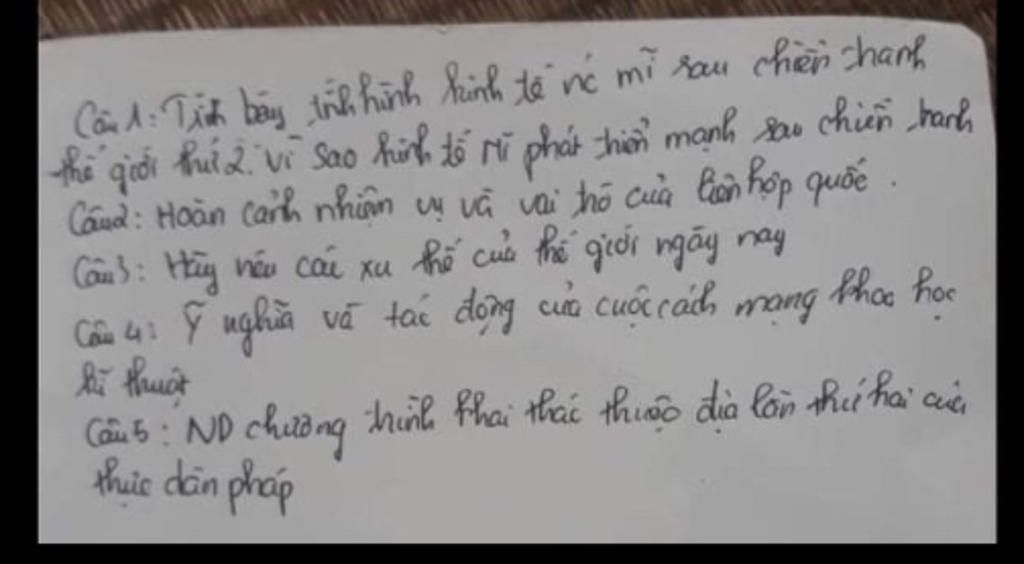 Câu 1: Trình bày tình hình kinh tế nc mĩ sau chiến tranh
thế giới thứ 2. Vì sao kinh tế Mĩ phát triển mạnh sau chiến tranh
Câu 2: Hoàn cảnh nhiệm vụ và vai trò của liên hợp quốc.
Câu 3: Hãy nêu các xu thế của thế giới ngày nay
Câu 4: Ý nghĩa và tác động của cuộc cách mạng khoa học
kĩ thuật
Câu 5: ND chương trình khai thác thuộc địa lần thứ hai của
thực dân pháp